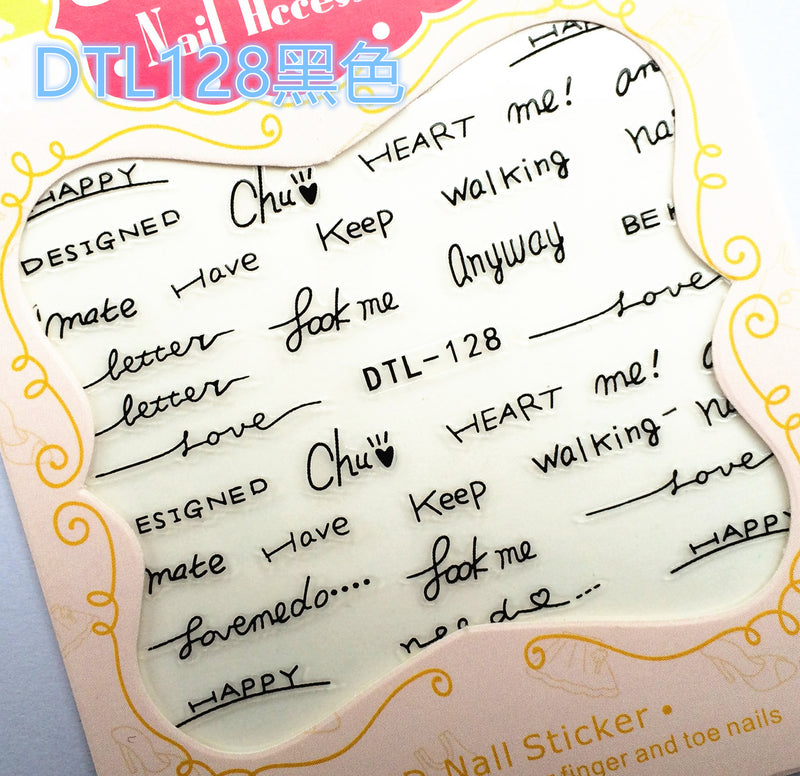 Nail Access
DTL128黑色
HAPPY
HEART me!
HAPPY Chu walking
DESIGNED Keep
mate Have Anyway BE
letter look me love
letter DTL-128
love HEART me!
Chu walking
ESIGNED Keep love
mate Have HAPPY
lovemedo.... look me
HAPPY
Nail Sticker •
finger and toe nails